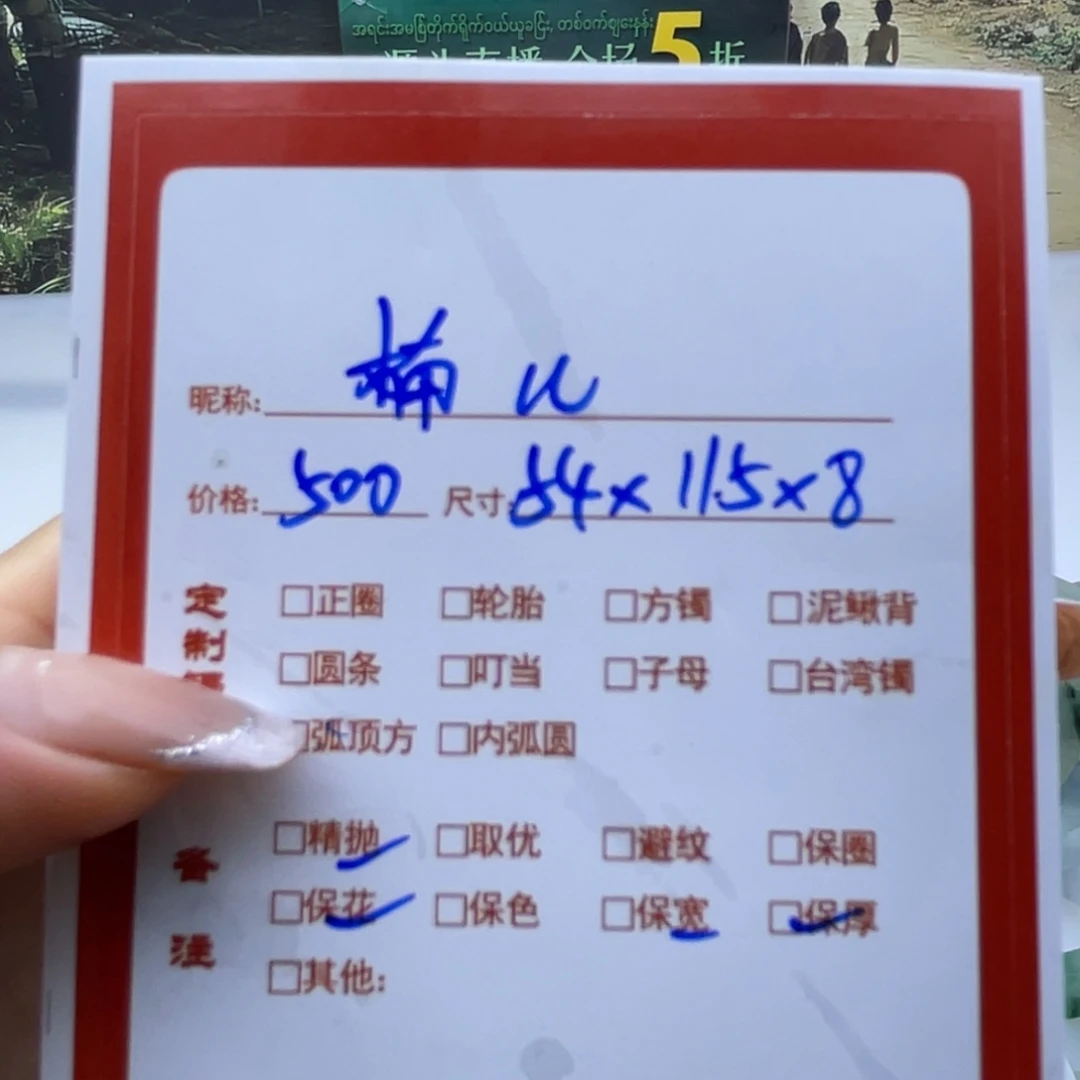 အရင်းအမစြတိုက်ရိုက်ဝယ်ယူခငြ်း, တစ်ဝက်စျးနှေန်း
源头直播 全场5折
昵称: 楠儿
价格: 500 尺寸: 54×11.5×8
定制
□正圈 □轮胎 □方镯 □泥鳅背
□圆条 □叮当 □子母 □台湾镯
□弧顶方 □内弧圆
备注
□精抛 □取优 □避纹 □保圈
□保花 □保色 □保宽 □保厚
□其他: